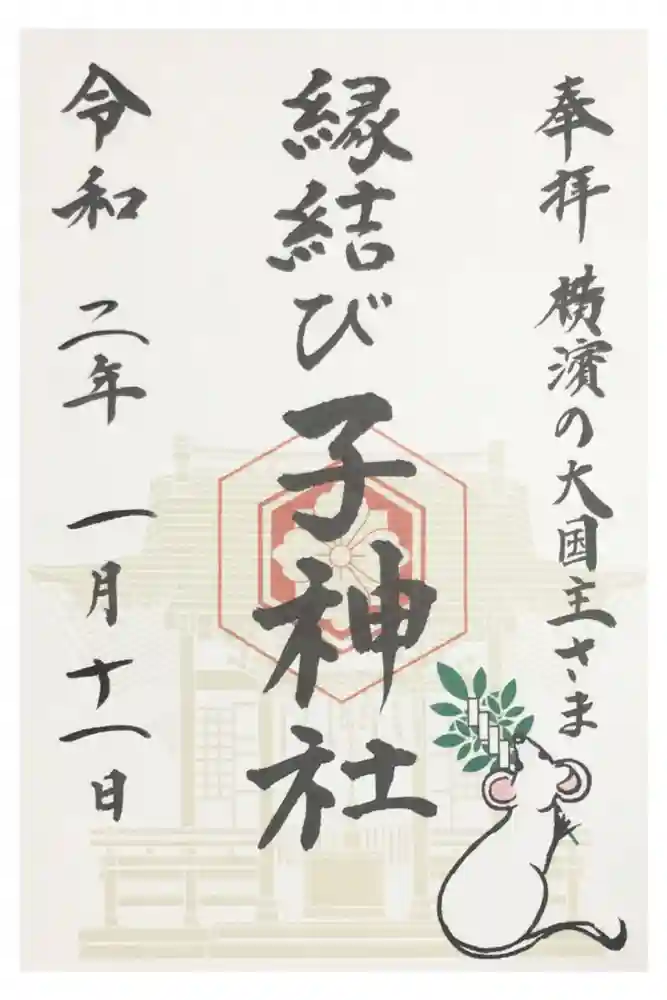 奉拝 横濱の大国主さま
縁結び 子神社
令和 二年 一月 十一日